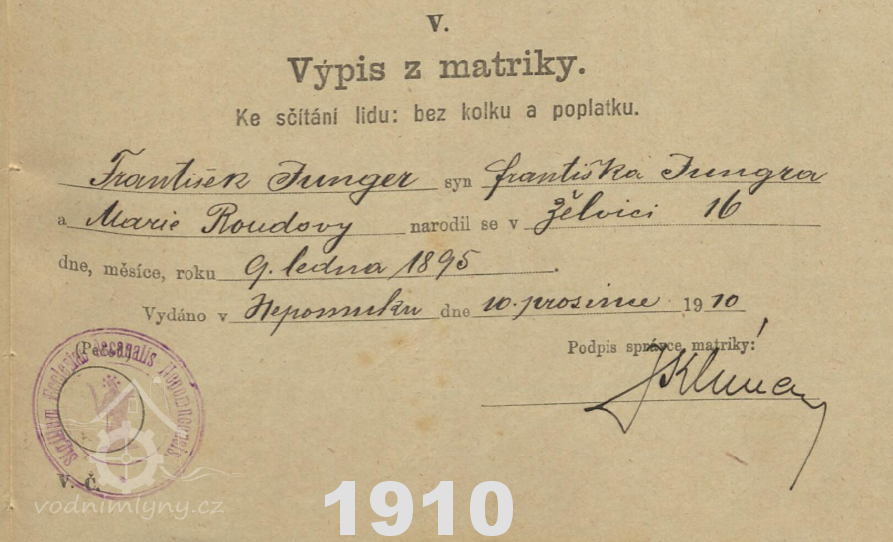 V.
Výpis z matriky.
Ke sčítání lidu: bez kolku a poplatku.
František Junger syn Františka Jungra
a Marie Roudovy narodil se v Želvici 16
dne, měsíce, roku 9. ledna 1895.
Vydáno v Nepomuku dne 10. prosince 1910
Podpis správce matriky:
Sigillum Ecclesiae Decanalis Nepomucensis
V. Č.
vodnimlyny.cz
1910